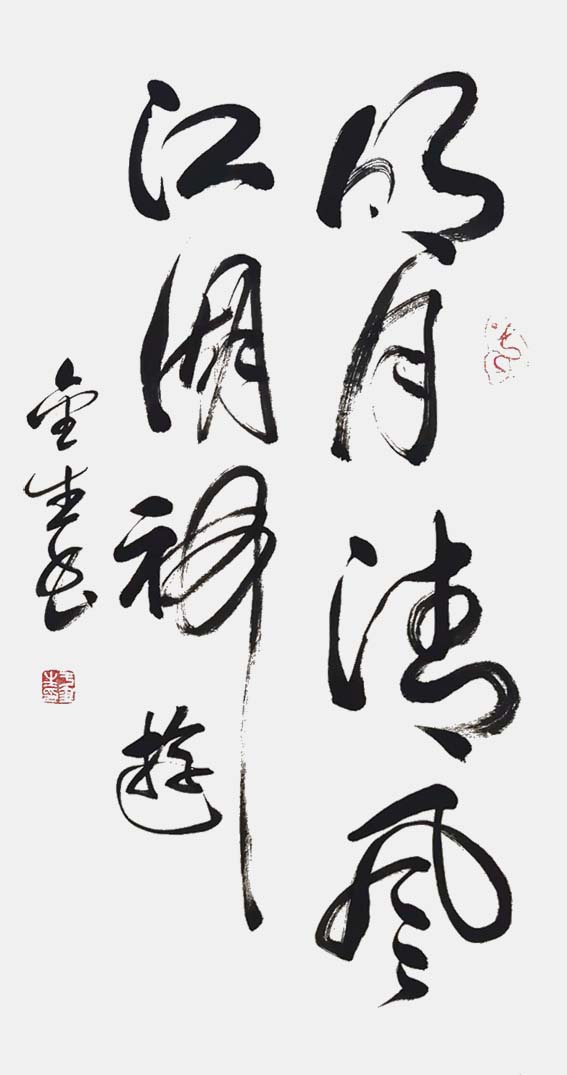 明月清風
江湖神遊
金生書